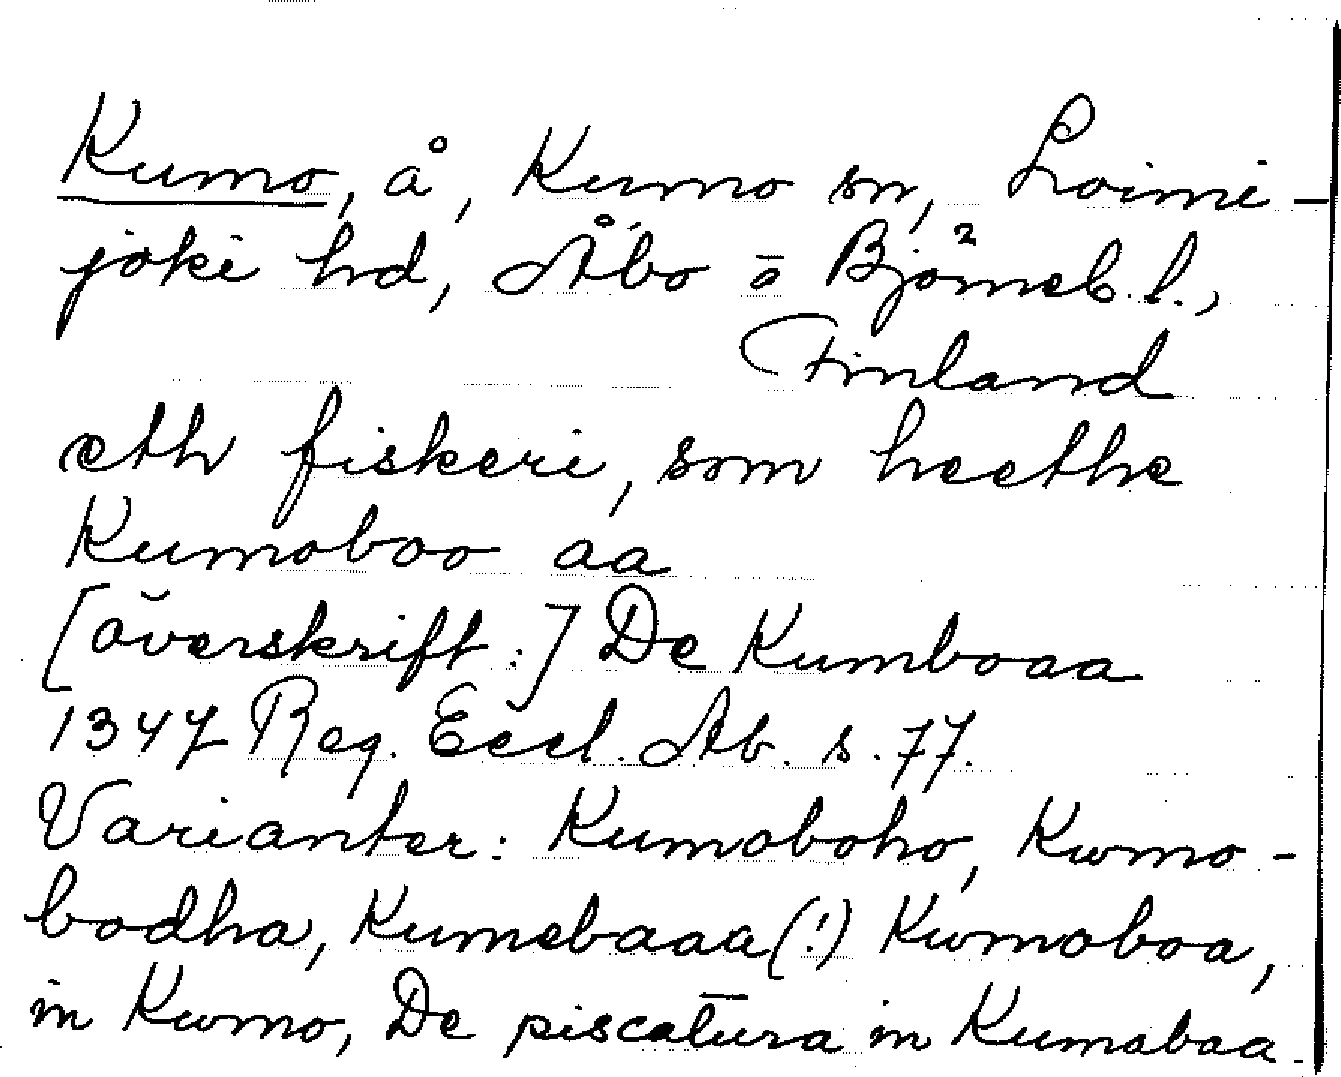 Kumo, å, Kumo sn, Loimi-
joki hd, Åbo o Björneb. l.,
Finland
eth fiskeri, som heethe
Kumoboo aa
[överskrift:] De Kumboaa
1347 Reg. Eccl. Ab. s. 77.
Varianter: Kumoboho, Kwmo-
bodha, Kumebaaa(!) Kwmoboa,
in Kwmo, De piscatūra in Kumabaa.